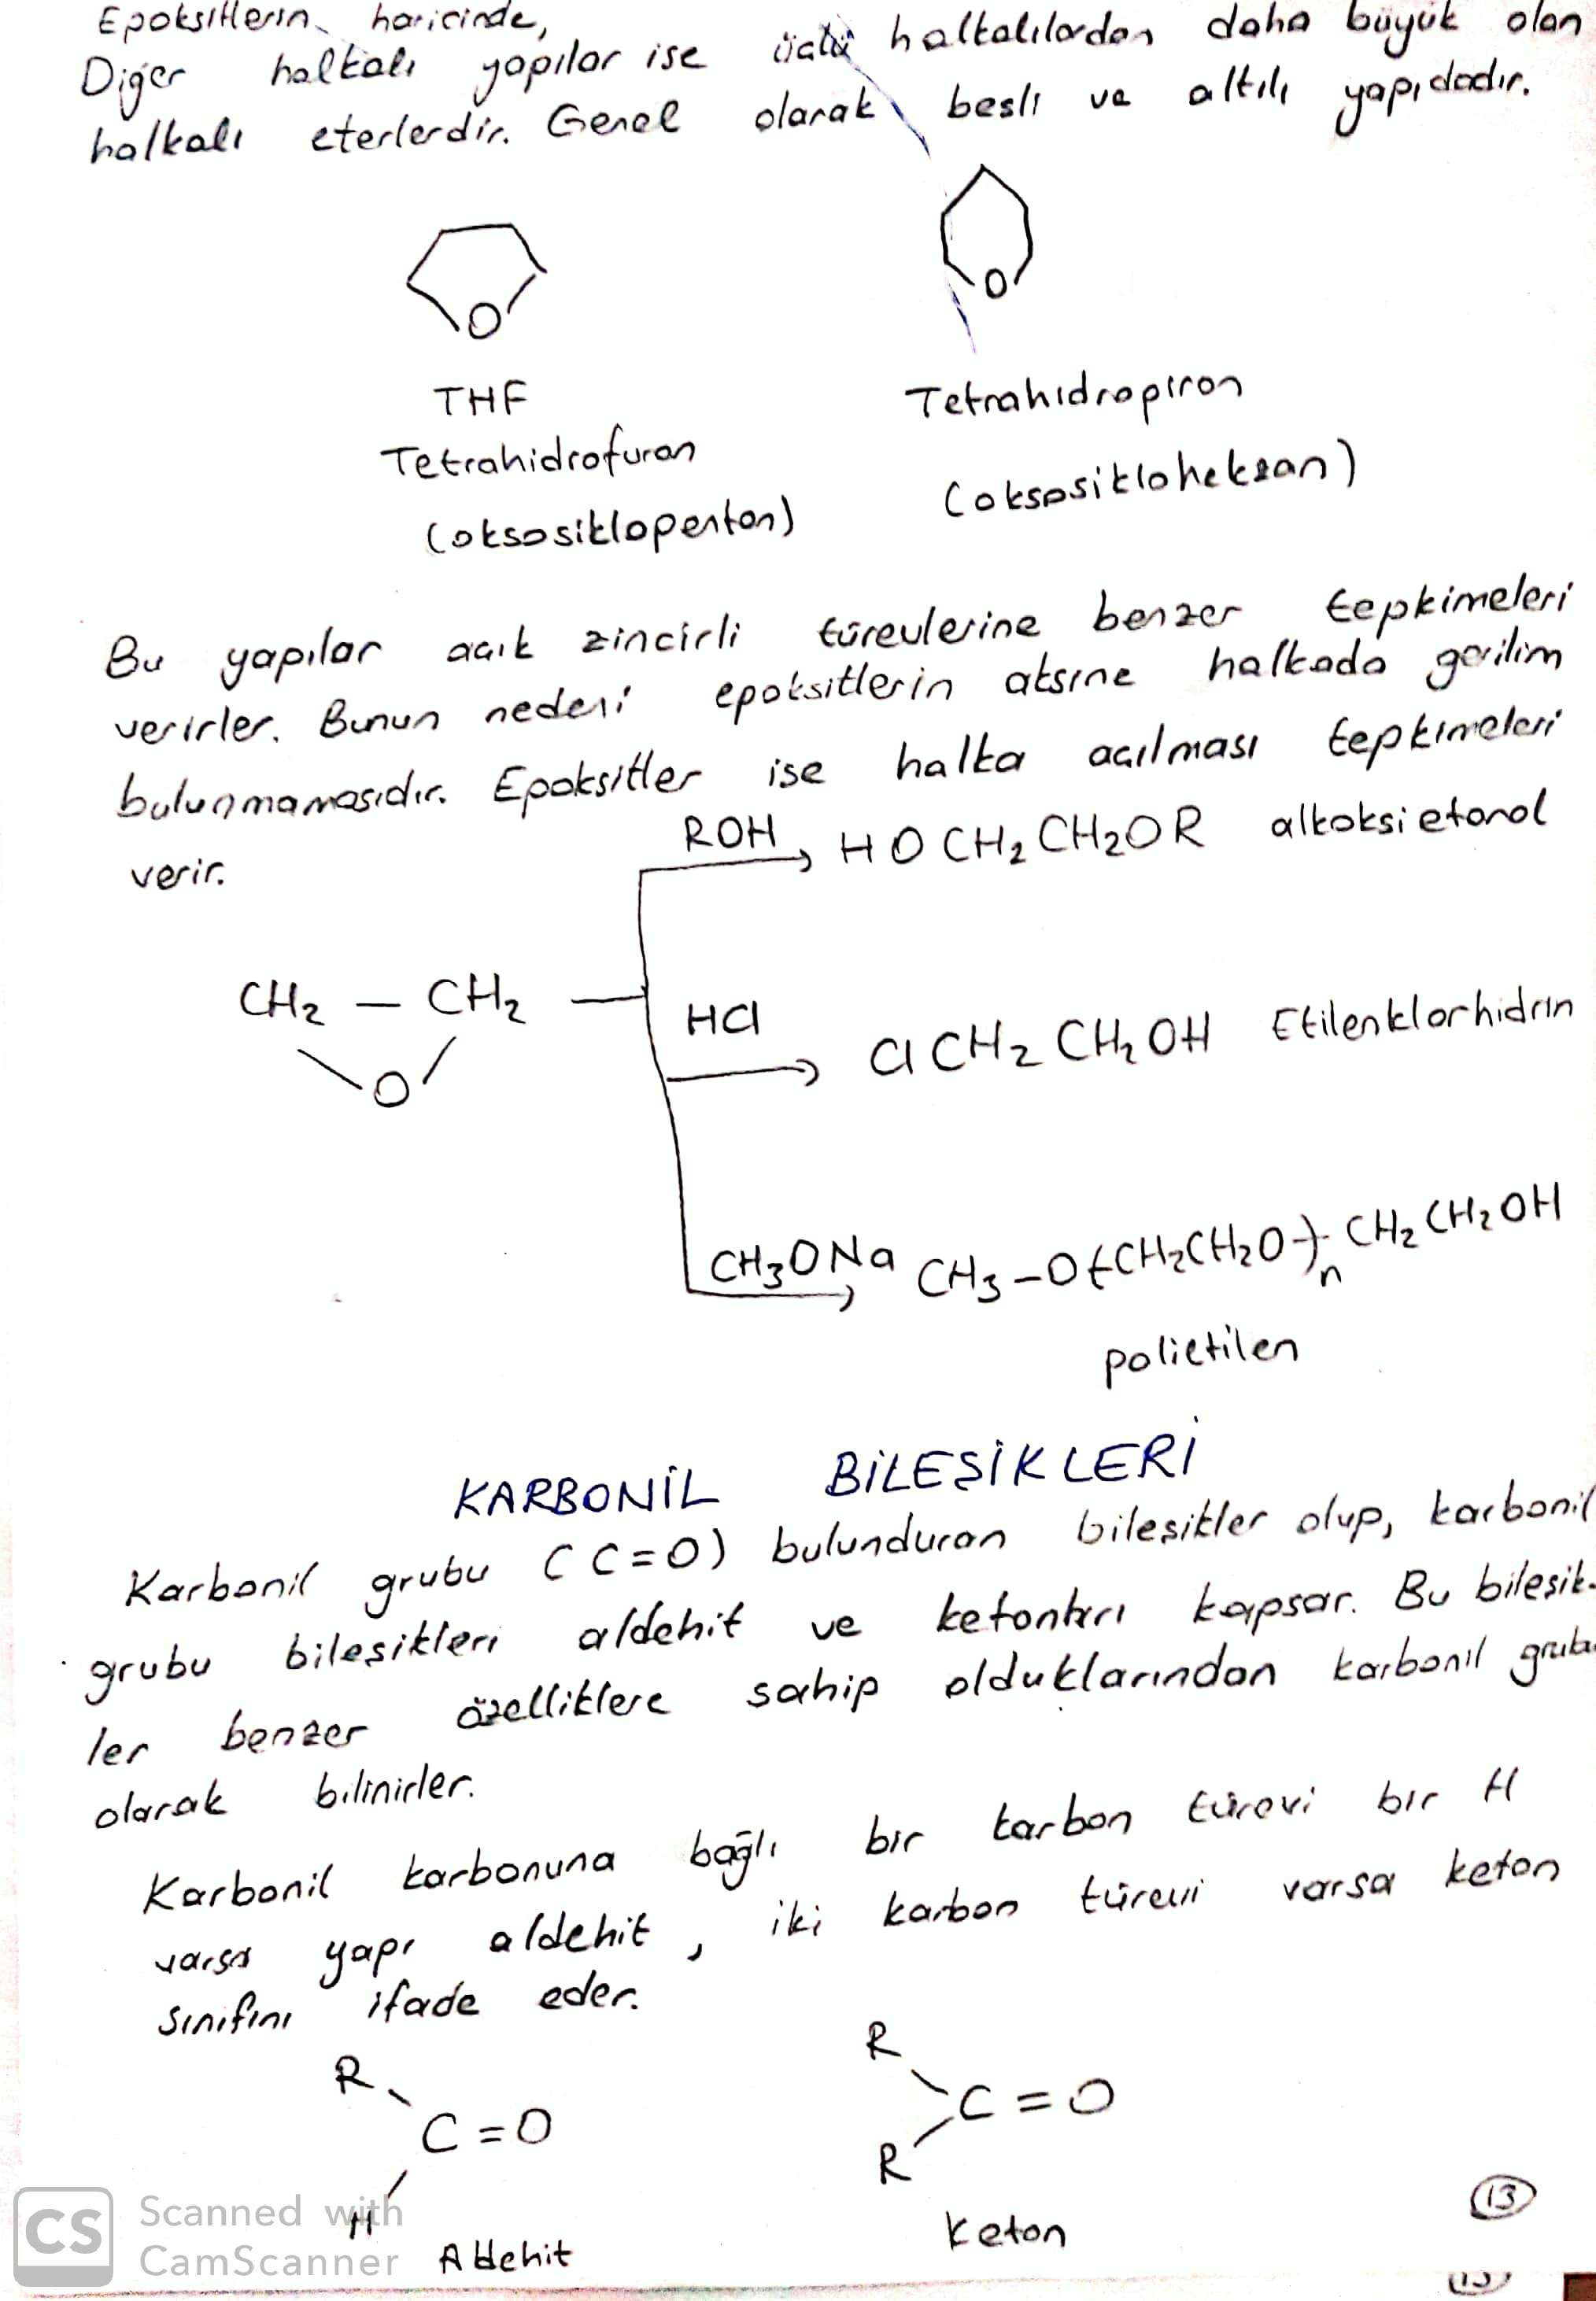 Epoksitlerin haricinde,
Diğer halkalı yapılar ise üçlü halkalılardan daha büyük olan
halkalı eterlerdir. Genel olarak beşli ve altılı yapıdadır.
O
O
THF
Tetrahidrofuran
(oksosiklopentan)
Tetrahidropiran
(oksosikloheksan)
Bu yapılar açık zincirli türevlerine benzer tepkimeleri
verirler. Bunun nedeni epoksitlerin aksine halkada gerilim
bulunmamasıdır. Epoksitler ise halka açılması tepkimeleri
verir.
ROH HOCH₂CH₂OR alkoksietanol
CH₂ — CH₂
O
HCl ClCH₂CH₂OH Etilenklorhidrin
CH₃ONa CH₃-O(CH₂CH₂O)ₙ CH₂CH₂OH
polietilen
KARBONİL BİLEŞİKLERİ
Karbonil grubu (C=O) bulunduran bileşikler olup, karbonil
grubu bileşikleri aldehit ve ketonları kapsar. Bu bileşik-
ler benzer özelliklere sahip olduklarından karbonil grubu
olarak bilinirler.
Karbonil karbonuna bağlı bir karbon türevi bir H
varsa yapı aldehit, iki karbon türevi varsa keton
sınıfını ifade eder.
R
C=O
H
Aldehit
R
C=O
R
Keton
13
CS Scanned with
CamScanner